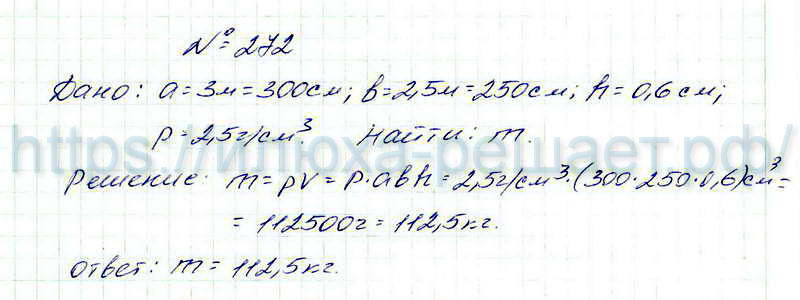 № 272
Дано: a = 3м = 300см; в = 2,5м = 250см; h = 0,6 см;
ρ = 2,5г/см³. Найти: m.
https://илюха-решает.рф/
Решение: m = ρV = ρ·aвh = 2,5г/см³·(300·250·0,6)см³ =
= 112500г = 112,5кг.
Ответ: m = 112,5кг.